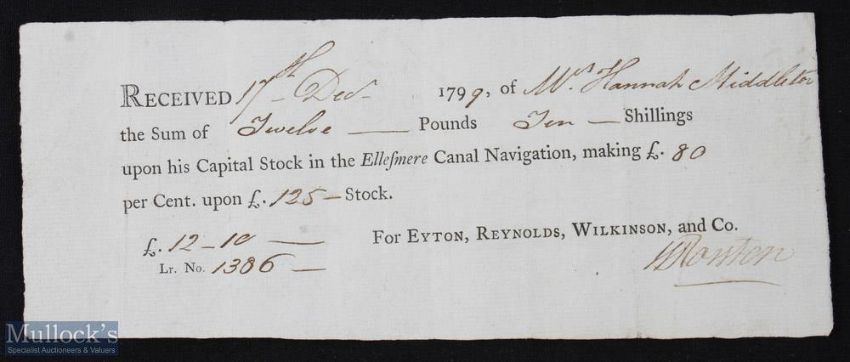 RECEIVED 17th Decr 1799, of Mrs Hannah Middleton
the Sum of Twelve — Pounds Ten — Shillings
upon his Capital Stock in the Ellеſmere Canal Navigation, making £. 80
per Cent. upon £. 125 — Stock.
£. 12-10 —
For EYTON, REYNOLDS, WILKINSON, and Co.
Lr. No. 1386 —
Mullock's
Specialist Auctioneers & Valuers